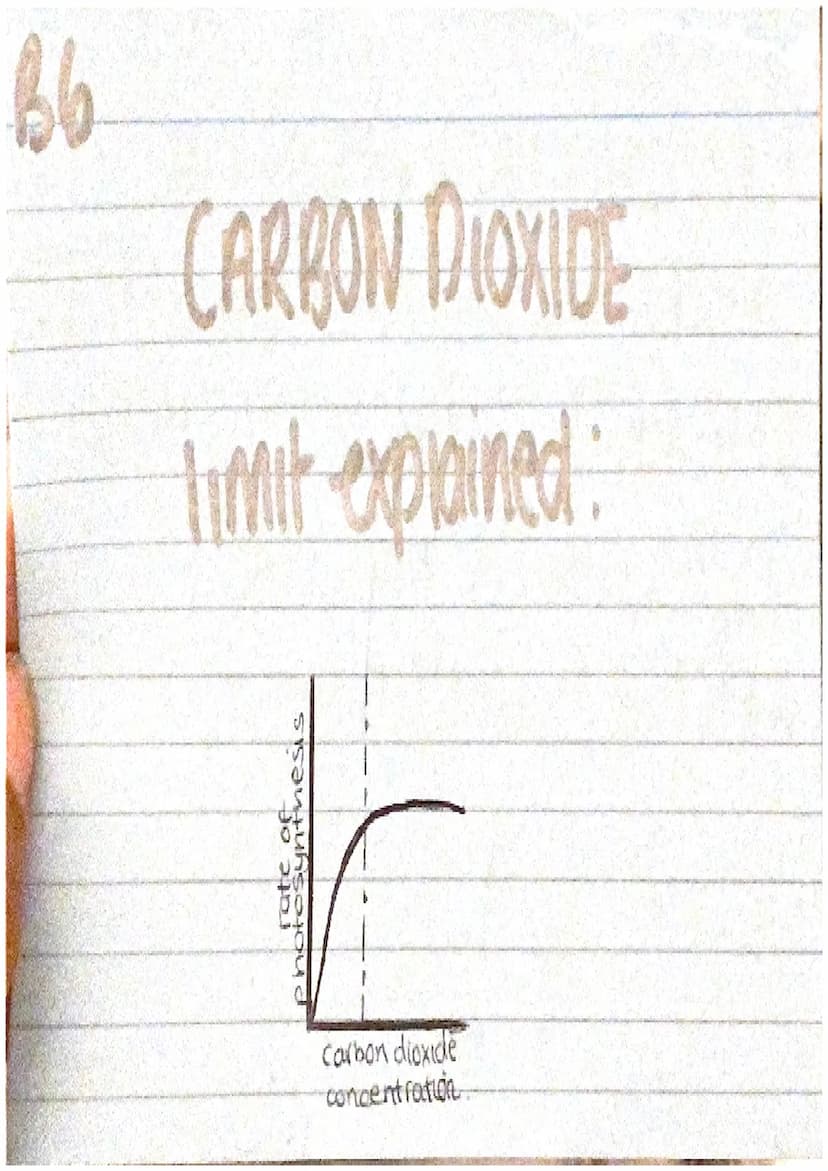 B6
CARBON DIOXIDE
limit explained:
rate of
photosynthesis
carbon dioxide
concentration